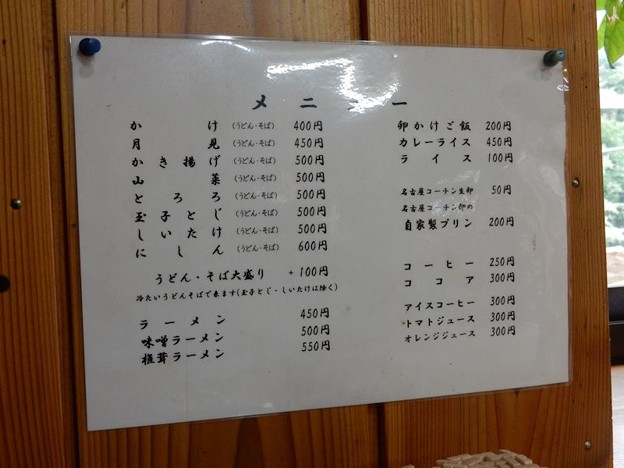 メニュー
かけ (うどん・そば) 400円
月見 (うどん・そば) 450円
かき揚げ (うどん・そば) 500円
山菜 (うどん・そば) 500円
とろろ (うどん・そば) 500円
玉子とじ (うどん・そば) 500円
しいたけ (うどん・そば) 500円
にしん (うどん・そば) 600円
うどん・そば大盛り +100円
冷たいうどんそばで来ます(玉子とじ・しいたけは除く)
ラーメン 450円
味噌ラーメン 500円
椎茸ラーメン 550円
卵かけご飯 200円
カレーライス 450円
ライス 100円
名古屋コーチン生卵 50円
名古屋コーチン卵の
自家製プリン 200円
コーヒー 250円
ココア 300円
アイスコーヒー 300円
トマトジュース 300円
オレンジジュース 300円